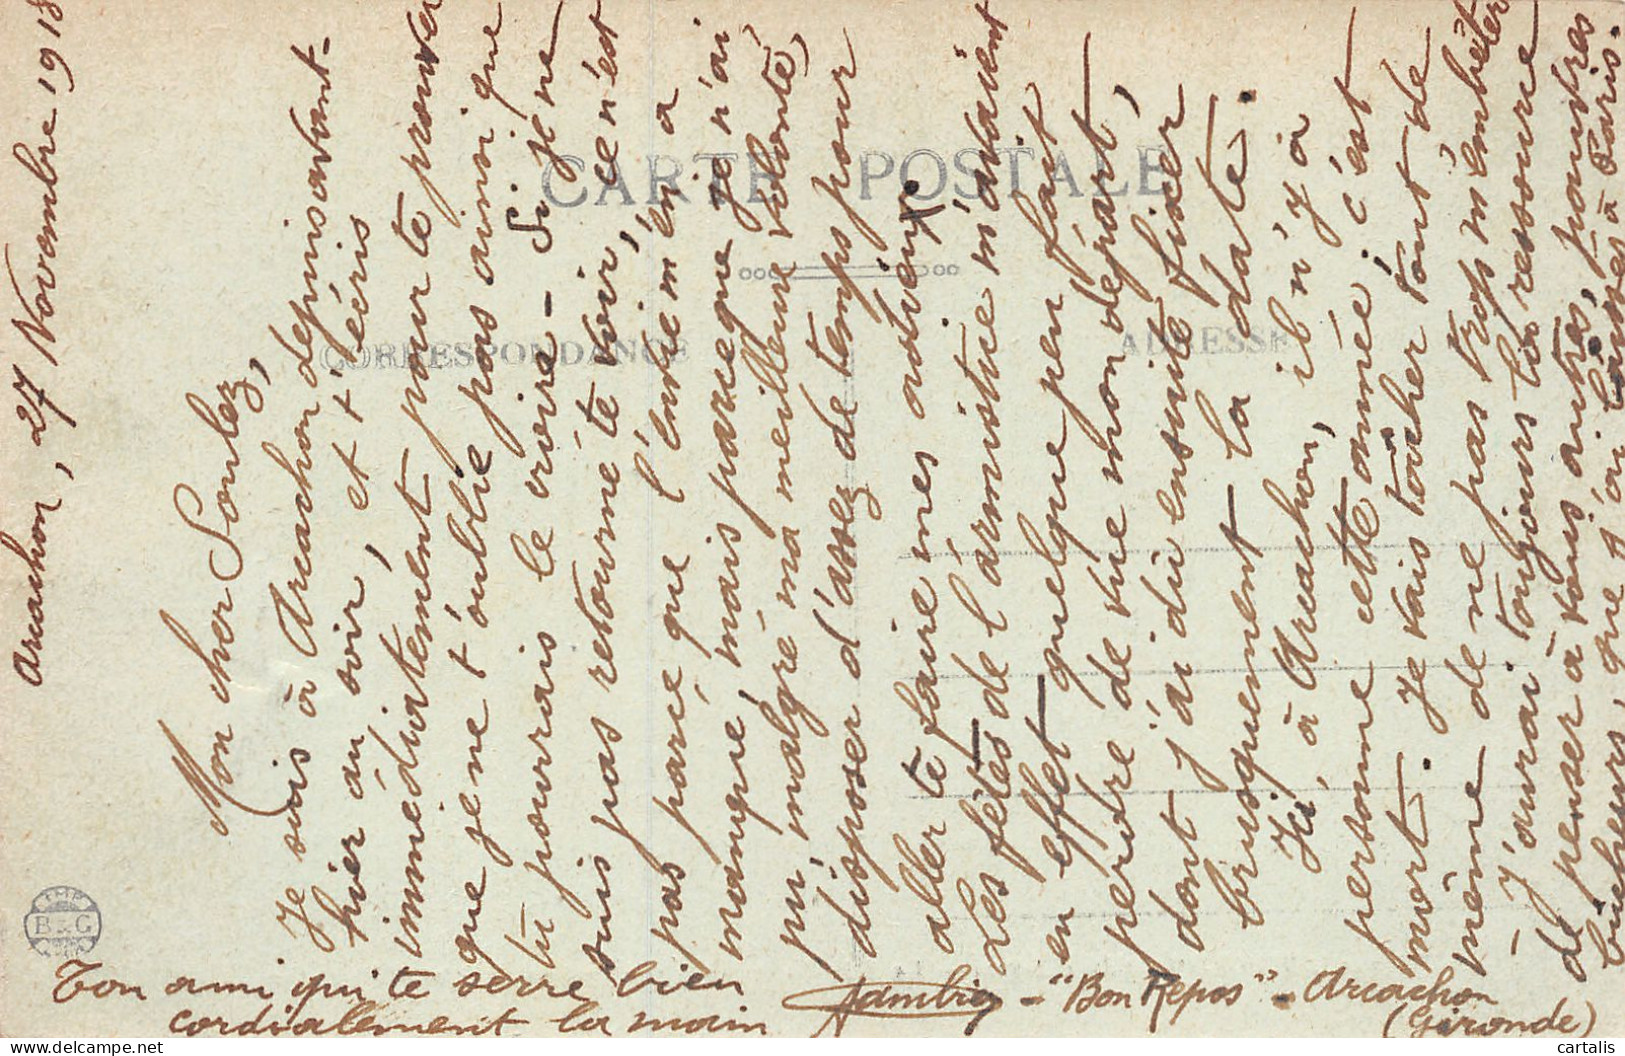 Arcachon, 27 Novembre 1918
Mon cher Soulez,
Je suis à Arcachon depuis avant-
hier au soir, et t'écris
immédiatement pour te prouver
que je ne t'oublie pas ainsi que
tu pourrais le croire - Si je ne
suis pas retourné te voir, ce n'est
pas parce que l'envie m'en a
manqué, mais parce que je n'ai
pu, malgré ma meilleure volonté,
disposer d'assez de temps pour
aller te faire mes adieux
Les fêtes de l'armistice m'avaient
en effet quelque peu fait
perdre de vue mon départ,
dont j'ai dû ensuite fixer
brusquement la date.
Ici, à Arcachon, il n'y a
personne cette année : c'est
mort. Je vais tâcher tout de
même de ne pas trop m'embêter
J'aurai toujours la ressource
de penser à vous autres, pauvres
bûcheurs, que j'ai laissés à Paris.
Ton ami qui te serre bien
cordialement la main
- "Bon Repos" - Arcachon
(Gironde)
CARTE POSTALE
CORRESPONDANCE
ADRESSE
IMP
B & G
cartalis